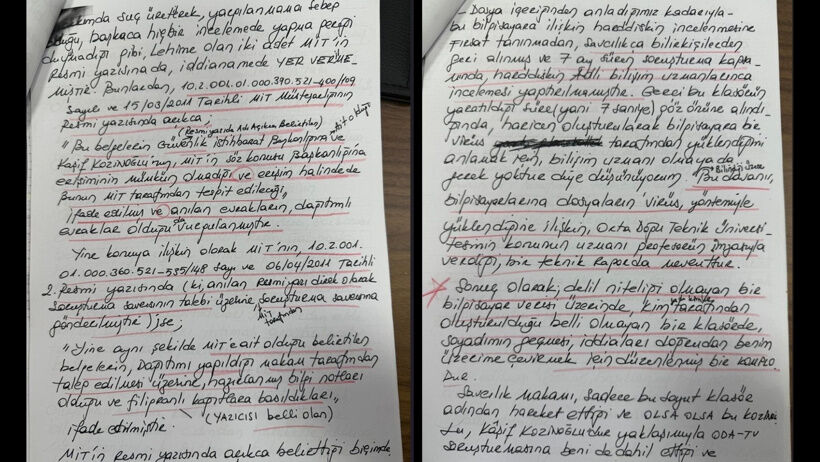 hakkımda suç üreterek, yargılanmama sebep
olduğu, başkaca hiçbir incelemede yapma gereği
duymadığı gibi, Lehime olan iki adet MİT'in
Resmi yazısına da, iddianamede YER VERME-
MİŞTİR. Bunlardan, 10.2.001.01.000.390.521-400/109
Sayılı ve 15/03/2011 Tarihli MİT Müsteşarlığının
Resmi yazısında açıkca;
(Resmi yazıda Adı Açıkca Belirtilen)
"Bu belgelerin Güvenlik istihbarat Başkanlığına ait olduğu ve
Kaşif KOZİNOĞLU'nun, MİT'in söz konusu Başkanlığına
erişiminin mümkün olmadığı ve erişim halinde de
Bunun MİT tarafından tespit edileceği,,
ifade edilmiş ve anılan evrakların, dağıtımlı
evraklar olduğu da vurgulanmıştır.
Yine konuya ilişkin olarak MİT'nın, 10.2.001.
01.000.360.521-535/148 sayı ve 06/04/2011 Tarihli
2. Resmi yazısında (ki, anılan Resmi yazı direk olarak
Soruşturma savcısının talebi üzerine, soruşturma savcısına
MİT tarafından
gönderilmiştir) ise;
"Yine aynı şekilde MİT'e ait olduğu belirtilen
belgelerin, Dağıtımı yapıldığı makam tarafından
talep edilmesi üzerine, hazırlanmış bilgi notları
olduğu ve filigranlı kağıtlara basıldıkları,,
(YAZICISI belli olan)
ifade edilmiştir.
MİT'in Resmi yazısında açıkca belirttiği biçimde
Dosya içeriğinden anladığımız kadarıyla-
bu bilgisayara ilişkin harddiskin incelenmesine
Fırsat tanınmadan, Savcılıkca bilirkişilerden
geri alınmış ve 7 ay süren soruşturma kapsa-
mında, harddiskin Adli bilişim uzmanlarınca
incelemesi yaptırılmamıştır. Gerçi bu klasörün
yaratıldığı süre (yani 7 saniye) göz önüne alındı-
ğında, haricen oluşturularak bilgisayara bir
virüs tarafından yüklendiğini
anlamak için, bilişim uzmanı olmaya da
gerek yoktur diye düşünüyorum. Bilindiği üzere Bu davanın,
bilgisayarlarına dosyaların 'virüs, yöntemiyle
yüklendiğine ilişkin, Orta Doğu Teknik Üniversi-
tesinin konunun uzmanı profesörün imzasıyla
verdiği, bir teknik raporda mevcuttur.
Sonuç olarak, delil niteliği olmayan bir
bilgisayar verisi üzerinde, kim tarafından
oluşturulduğu belli olmayan bir klasörde,
soyadımın geçmesi, iddiaları doğrudan benim
üzerime çevirmek için düzenlenmiş bir KOMPLO
DUR.
Savcılık Makamı, sadece bu soyut klasör
adından hareket ettiği ve OLSA OLSA bu KOZİNOĞ-
LU, KÂŞİF KOZİNOĞLU'dur yaklaşımıyla ODA-TV
Soruşturmasına beni de dahil ettiği ve